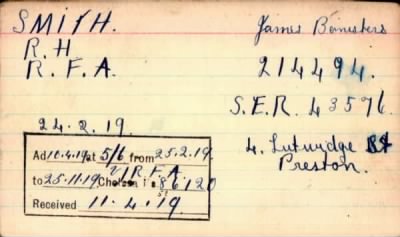 SMITH. James Bannisters
R.H
R.F.A. 214494.
S.E.R. 43576
24.2.19. 4. Lutwydge St
Preston.
Ad 10.4.19 at 5/6 from 25.2.19.
to 25.11.19 V/R.F.A.
Chelsea 86120
Received 11.4.19